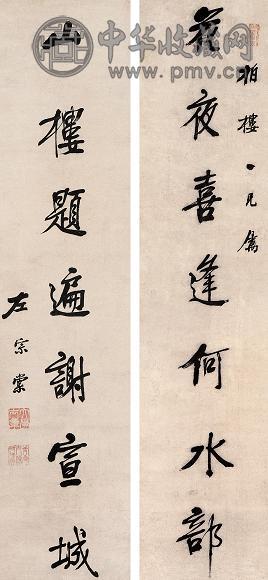 中华收藏网
www.pmv.cn
樓 兄 屬
夜喜逢何水部
山樓題遍謝宣城
左宗棠